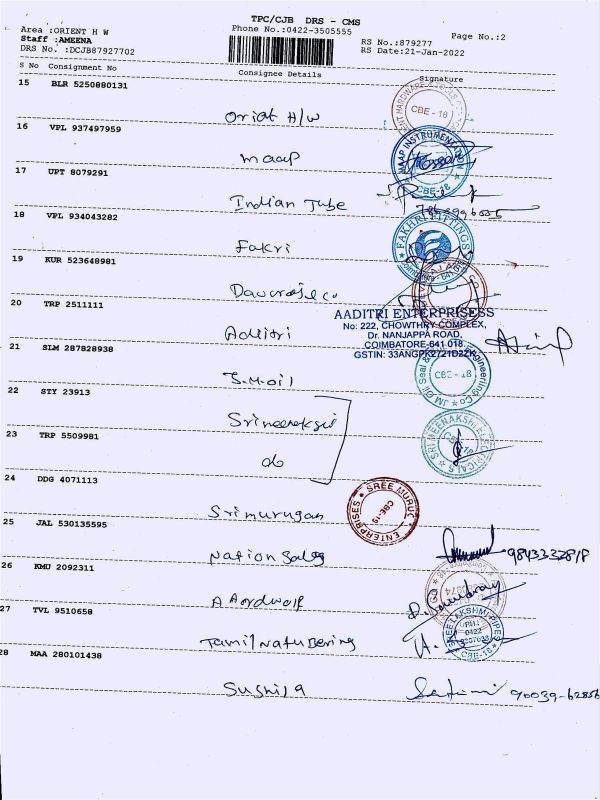 TPC/CJB DRS - CMS
Area :ORIENT H W
Phone No.:0422-3505555
Page No.:2
Staff :AMEENA
RS No.:879277
DRS No. :DCJB87927702
RS Date:21-Jan-2022
S No Consignment No
Consignee Details
Signature
15 BLR 5250880131
Oriat H/W
CBE - 18
16 VPL 937497959
maap
MAAP INSTRUMENTATION
CBE-18
17 UPT 8079291
Indian Tube
18 VPL 934043282
Fakri
FAKHRI FITTINGS
19 KUR 523648981
20 TRP 2511111
Aditri
AADITRI ENTERPRISESS
No: 222, CHOWTHRY COMPLEX,
Dr. NANJAPPA ROAD,
COIMBATORE-641 018.
GSTIN: 33ANGPK2721D2ZK
21 SLM 287828938
J.M.oil
JM Oil Seal & Engineering Co
CBE - 18
22 STY 23913
Srimeenakshi
23 TRP 5509981
do
SRI MEENAKSHI ELECTRICALS
CBE-18
24 DDG 4071113
Srimurugan
SREE MURUGAN ENTERPRISES
CBE-18
25 JAL 530135595
Nation Sales
9843332818
26 KMU 2092311
A Aardwolf
27 TVL 9510658
Tamil Natu Bering
SREE LAKSHMI PIPES
PH:
0422
CBE-18
28 MAA 280101438
Sushila
90039-62856